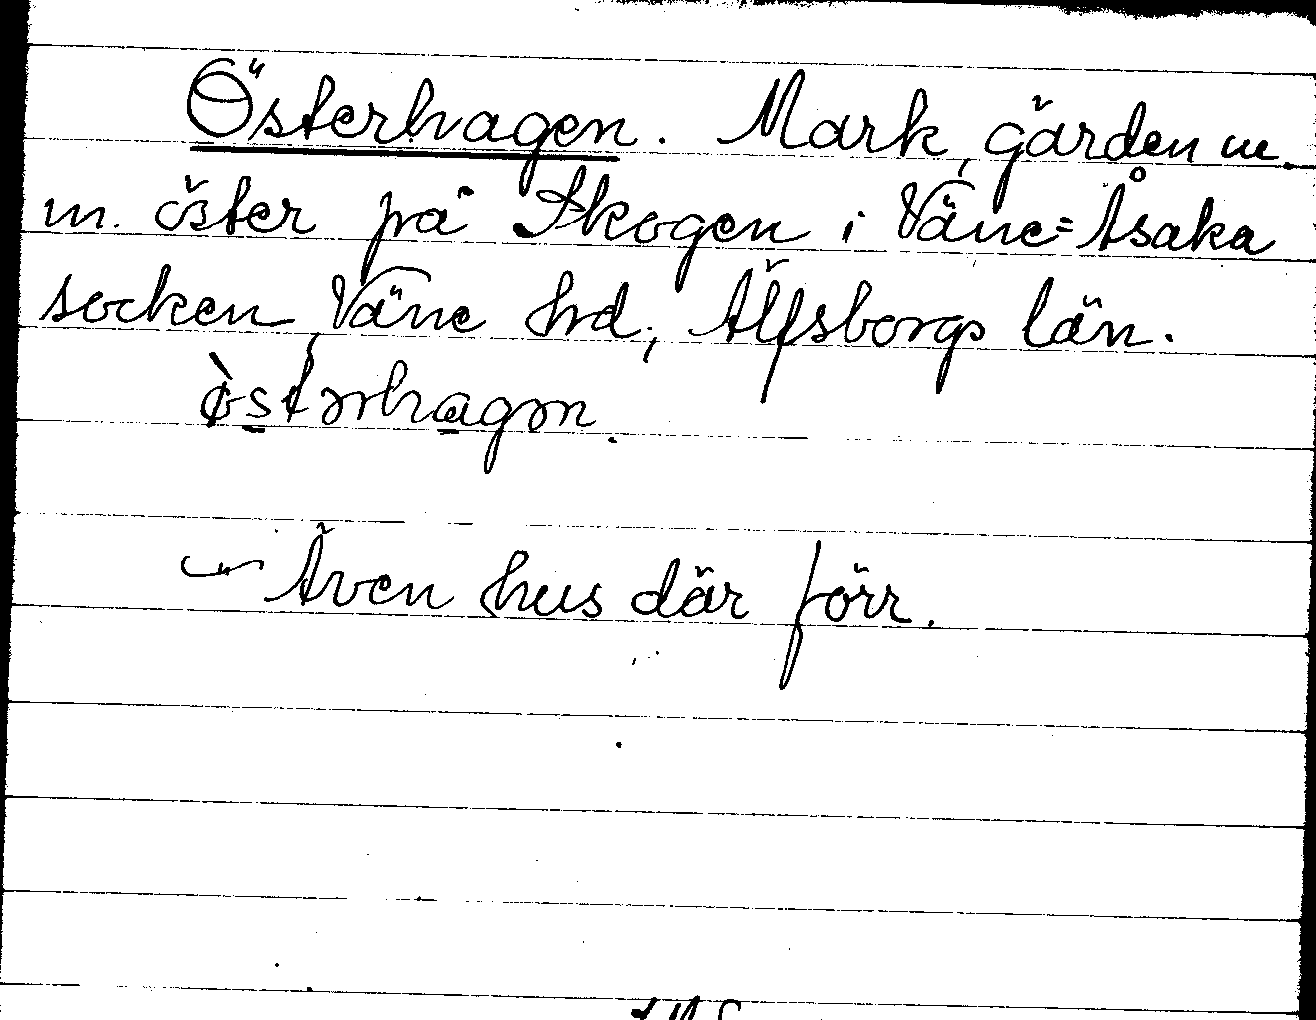 Österhagen. Mark, gärden m.
m. öster på Skogen i Väne=Åsaka
socken, Väne hd, Älfsborgs län.
Även hus där förr.